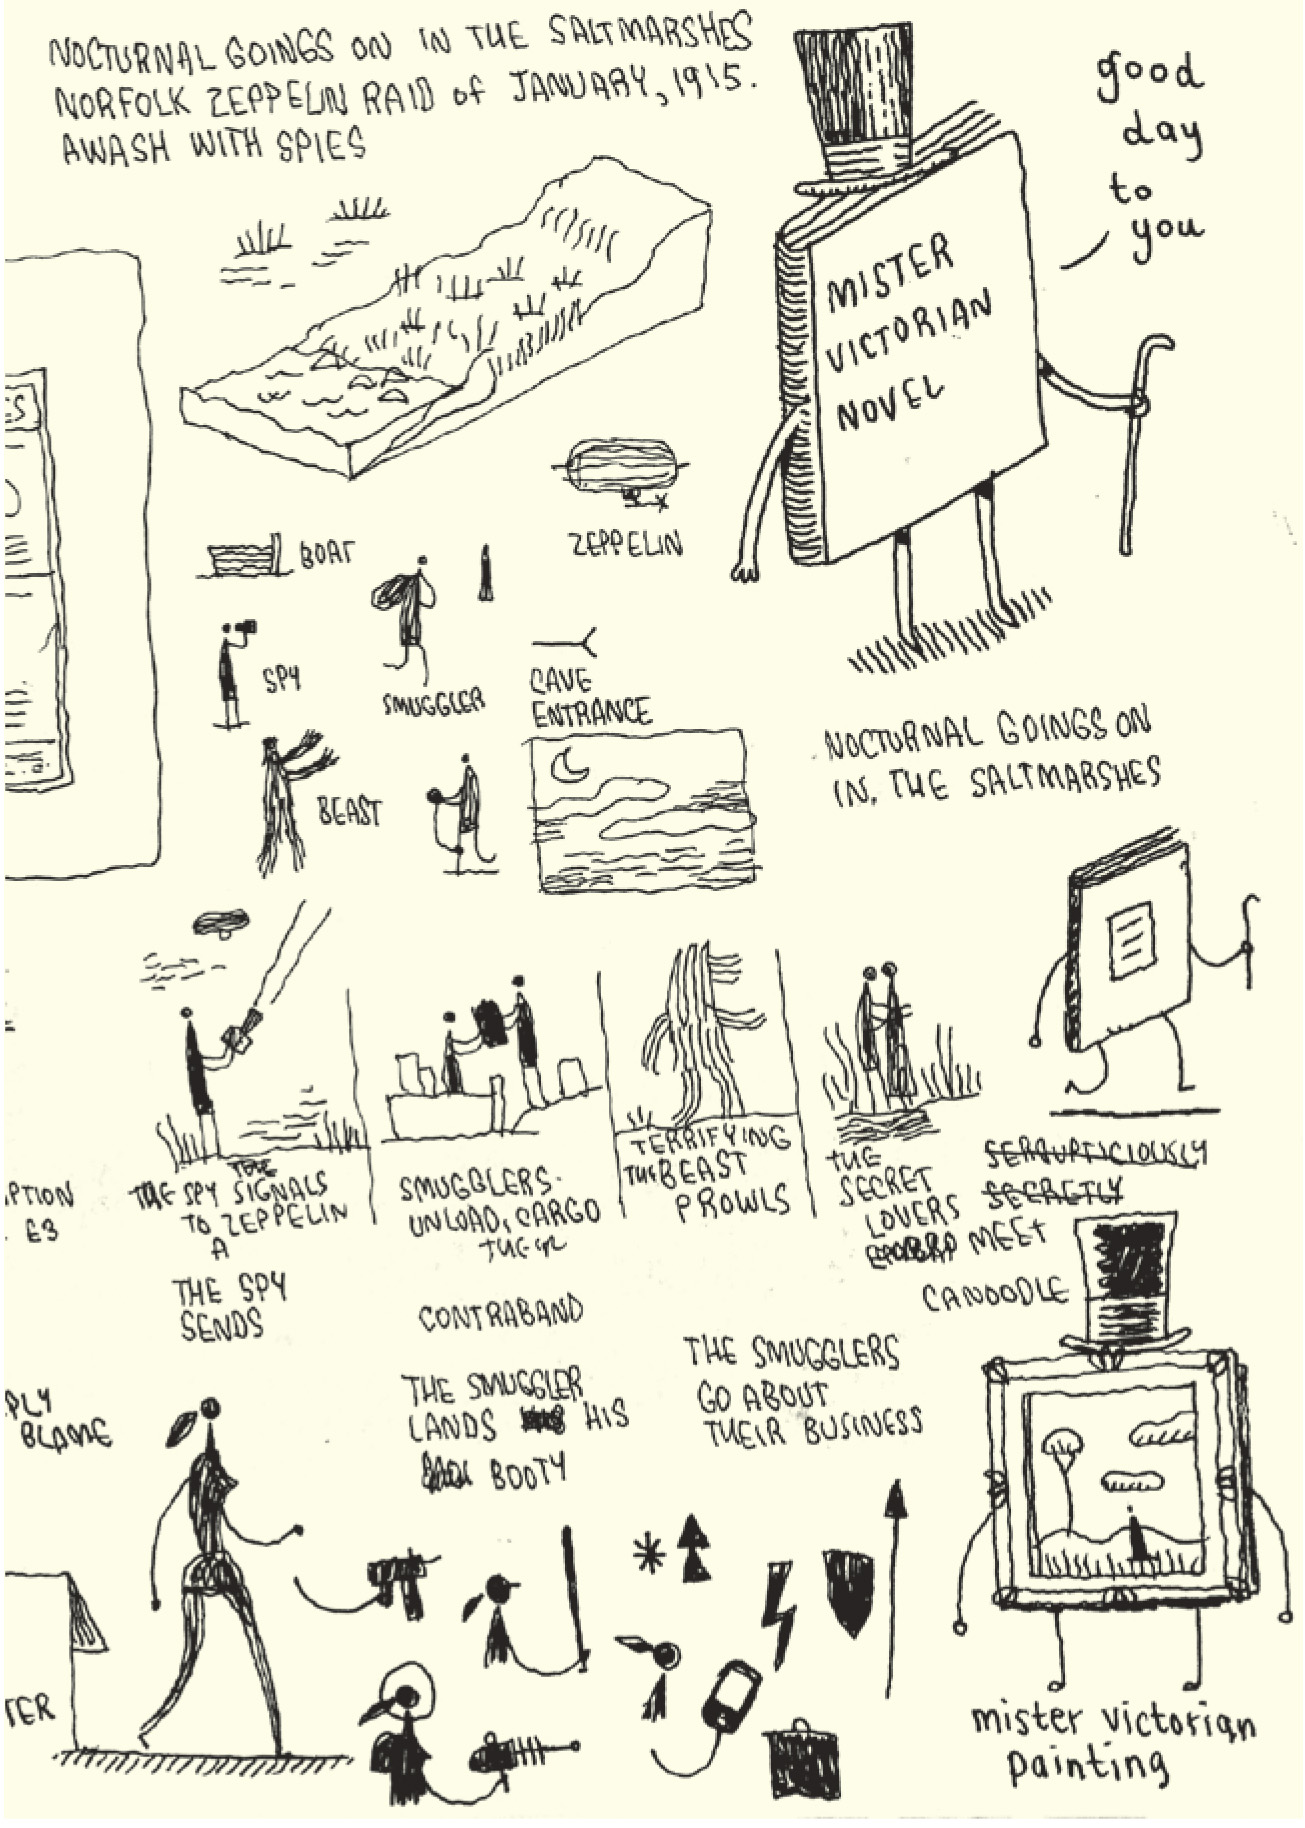 NOCTURNAL GOINGS ON IN THE SALTMARSHES
NORFOLK ZEPPELIN RAID of JANUARY, 1915.
AWASH WITH SPIES
good
day
to
you
MISTER
VICTORIAN
NOVEL
ES
ZEPPELIN
BOAT
SPY
SMUGGLER
CAVE
ENTRANCE
BEAST
NOCTURNAL GOINGS ON
IN, THE SALTMARSHES
IPTION
E3
THE
THE SPY SIGNALS
TO ZEPPELIN
A
THE SPY
SENDS
SMUGGLERS.
UNLOAD, CARGO
THEIR
CONTRABAND
THE SMUGGLER
LANDS HIS
BOOTY
TERRIFYING
THE BEAST
PROWLS
THE
SECRET
LOVERS
MEET
SERRUPTICIOUSLY
SECRETLY
CANOODLE
THE SMUGGLERS
GO ABOUT
THEIR BUSINESS
PLY
BLAME
TER
mister victorian
painting